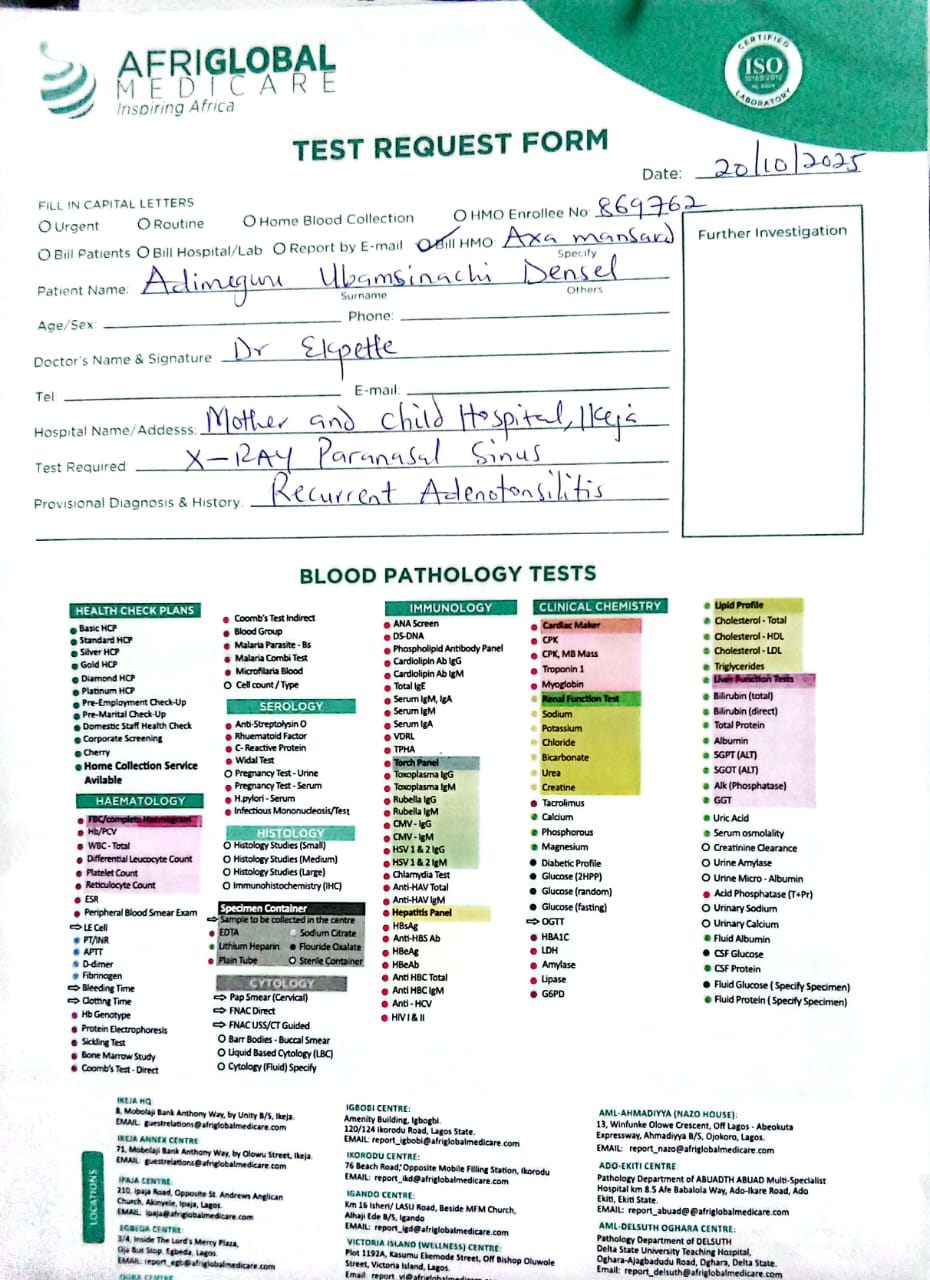 AFRIGLOBAL
MEDICARE
Inspiring Africa
CERTIFIED
ISO
LABORATORY
TEST REQUEST FORM
Date: 20/10/2025
FILL IN CAPITAL LETTERS
Urgent Routine Home Blood Collection HMO Enrollee No: 869762
Bill Patients Bill Hospital/Lab Report by E-mail Bill HMO: Axa mansard
Specify
Further Investigation
Patient Name: Adimegwu Ubamsinachi Densel
Surname Others
Age/Sex: Phone:
Doctor's Name & Signature Dr Ekpette
Tel: E-mail:
Hospital Name/Addesss: Mother and child Hospital, Ikeja
Test Required: X-RAY Paranasal Sinus
Provisional Diagnosis & History: Recurrent Adenotonsilitis
BLOOD PATHOLOGY TESTS
HEALTH CHECK PLANS
Basic HCP
Standard HCP
Silver HCP
Gold HCP
Diamond HCP
Platinum HCP
Pre-Employment Check-Up
Pre-Marital Check-Up
Domestic Staff Health Check
Corporate Screening
Cherry
Home Collection Service
Avilable
HAEMATOLOGY
FBC/complete Haemogram
Hb/PCV
WBC - Total
Differential Leucocyte Count
Platelet Count
Reticulocyte Count
ESR
Peripheral Blood Smear Exam
LE Cell
PT/INR
APTT
D-dimer
Fibrinogen
Bleeding Time
Clotting Time
Hb Genotype
Protein Electrophoresis
Sickling Test
Bone Marrow Study
Coomb's Test - Direct
Coomb's Test Indirect
Blood Group
Malaria Parasite - Bs
Malaria Combi Test
Microfilaria Blood
Cell count / Type
SEROLOGY
Anti-Streptolysin O
Rhuematoid Factor
C- Reactive Protein
Widal Test
Pregnancy Test - Urine
Pregnancy Test - Serum
H.pylori - Serum
Infectious Mononucleosis/Test
HISTOLOGY
Histology Studies (Small)
Histology Studies (Medium)
Histology Studies (Large)
Immunohistochemistry (IHC)
Specimen Container
Sample to be collected in the centre
EDTA Sodium Citrate
Lithium Heparin Flouride Oxalate
Plain Tube Sterile Container
CYTOLOGY
Pap Smear (Cervical)
FNAC Direct
FNAC USS/CT Guided
Barr Bodies - Buccal Smear
Liquid Based Cytology (LBC)
Cytology (Fluid) Specify
IMMUNOLOGY
ANA Screen
DS-DNA
Phospholipid Antibody Panel
Cardiolipin Ab IgG
Cardiolipin Ab IgM
Total IgE
Serum IgM, IgA
Serum IgM
Serum IgA
VDRL
TPHA
Torch Panel
Toxoplasma IgG
Toxoplasma IgM
Rubella IgG
Rubella IgM
CMV - IgG
CMV - IgM
HSV 1 & 2 IgG
HSV 1 & 2 IgM
Chlamydia Test
Anti-HAV Total
Anti-HAV IgM
Hepatitis Panel
HBsAg
Anti-HBS Ab
HBeAg
HBeAb
Anti HBC Total
Anti HBC IgM
Anti - HCV
HIV I & II
CLINICAL CHEMISTRY
Cardiac Maker
CPK
CPK, MB Mass
Troponin 1
Myoglobin
Renal Function Test
Sodium
Potassium
Chloride
Bicarbonate
Urea
Creatine
Tacrolimus
Calcium
Phosphorous
Magnesium
Diabetic Profile
Glucose (2HPP)
Glucose (random)
Glucose (fasting)
OGTT
HBA1C
LDH
Amylase
Lipase
G6PD
Lipid Profile
Cholesterol - Total
Cholesterol - HDL
Cholesterol - LDL
Triglycerides
Liver Function Tests
Bilirubin (total)
Bilirubin (direct)
Total Protein
Albumin
SGPT (ALT)
SGOT (ALT)
Alk (Phosphatase)
GGT
Uric Acid
Serum osmolality
Creatinine Clearance
Urine Amylase
Urine Micro - Albumin
Acid Phosphatase (T+Pr)
Urinary Sodium
Urinary Calcium
Fluid Albumin
CSF Glucose
CSF Protein
Fluid Glucose ( Specify Specimen)
Fluid Protein ( Specify Specimen)
LOCATIONS
IKEJA HQ:
8, Mobolaji Bank Anthony Way, by Unity B/S, Ikeja.
EMAIL: guestrelations@afriglobalmedicare.com
IKEJA ANNEX CENTRE
71, Mobolaji Bank Anthony Way, by Olowu Street, Ikeja.
EMAIL: guestrelations@afriglobalmedicare.com
IPAJA CENTRE:
210, Ipaja Road, Opposite St. Andrews Anglican
Church, Akinyele, Ipaja, Lagos.
EMAIL: ipaja@afriglobalmedicare.com
EGBEDA CENTRE:
3/4, Inside The Lord's Mercy Plaza,
Oja Bus Stop, Egbeda, Lagos.
EMAIL: report_egb@afriglobalmedicare.com
IGBOBI CENTRE:
Amenity Building, Igbogbi.
120/124 Ikorodu Road, Lagos State.
EMAIL: report_igbobi@afriglobalmedicare.com
IKORODU CENTRE:
76 Beach Road, Opposite Mobile Filling Station, Ikorodu
EMAIL: report_ikd@afriglobalmedicare.com
IGANDO CENTRE:
Km 16 Isheri/ LASU Road, Beside MFM Church,
Alhaji Ede B/S, Igando
EMAIL: report_igd@afriglobalmedicare.com
VICTORIA ISLAND (WELLNESS) CENTRE:
Plot 1192A, Kasumu Ekemode Street, Off Bishop Oluwole
Street, Victoria Island, Lagos.
Email: report_vi@afriglobalmedicare.com
AML-AHMADIYYA (NAZO HOUSE):
13, Winfunke Olowe Crescent, Off Lagos - Abeokuta
Expressway, Ahmadiyya B/S, Ojokoro, Lagos.
EMAIL: report_nazo@afriglobalmedicare.com
ADO-EKITI CENTRE:
Pathology Department of ABUADTH ABUAD Multi-Specialist
Hospital km 8.5 Afe Babalola Way, Ado-Ikare Road, Ado
Ekiti, Ekiti State.
EMAIL: report_abuad@@afriglobalmedicare.com
AML-DELSUTH OGHARA CENTRE:
Pathology Department of DELSUTH
Delta State University Teaching Hospital,
Oghara-Ajagbadudu Road, Oghara, Delta State.
Email: report_delsuth@afriglobalmedicare.com